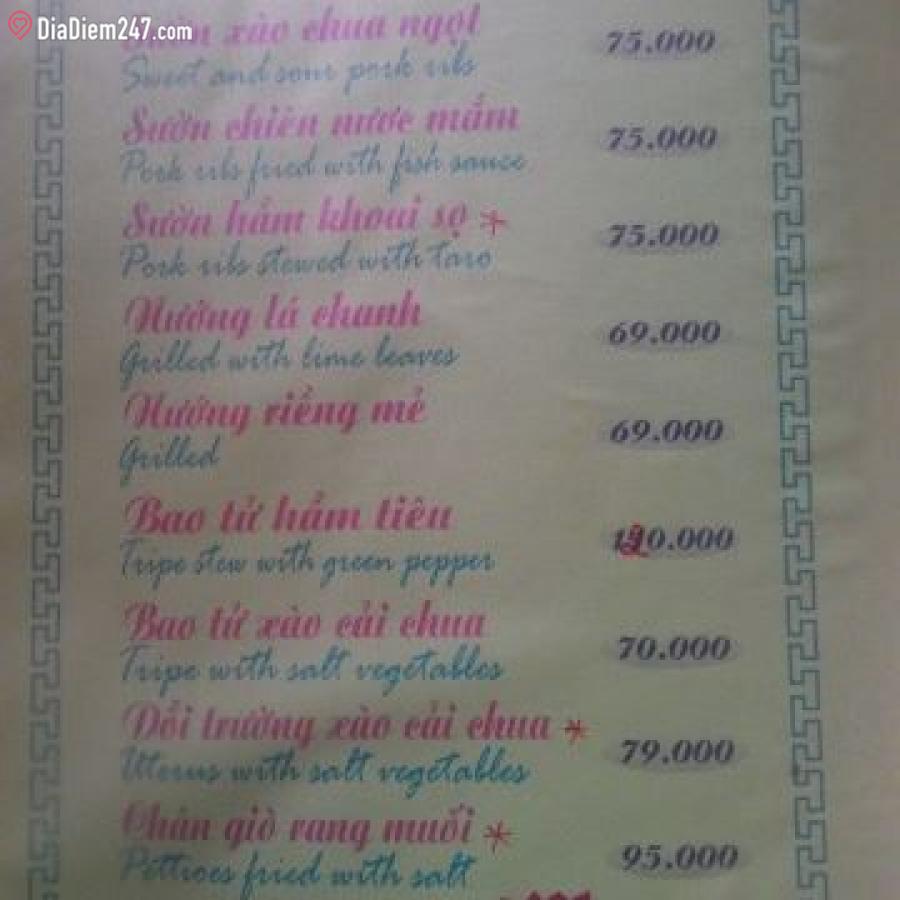 DiaDiem247.com
Sườn xào chua ngọt 75.000
Sweet and sour pork ribs
Sườn chiên nước mắm 75.000
Pork ribs fried with fish sauce
Sườn hầm khoai sọ * 75.000
Pork ribs stewed with taro
Nướng lá chanh 69.000
Grilled with lime leaves
Nướng riềng mẻ 69.000
Grilled
Bao tử hầm tiêu 120.000
Tripe stew with green pepper
Bao tử xào cải chua 70.000
Tripe with salt vegetables
Dồi trường xào cải chua * 79.000
Uterus with salt vegetables
Chân giò rang muối * 95.000
Pettioes fried with salt